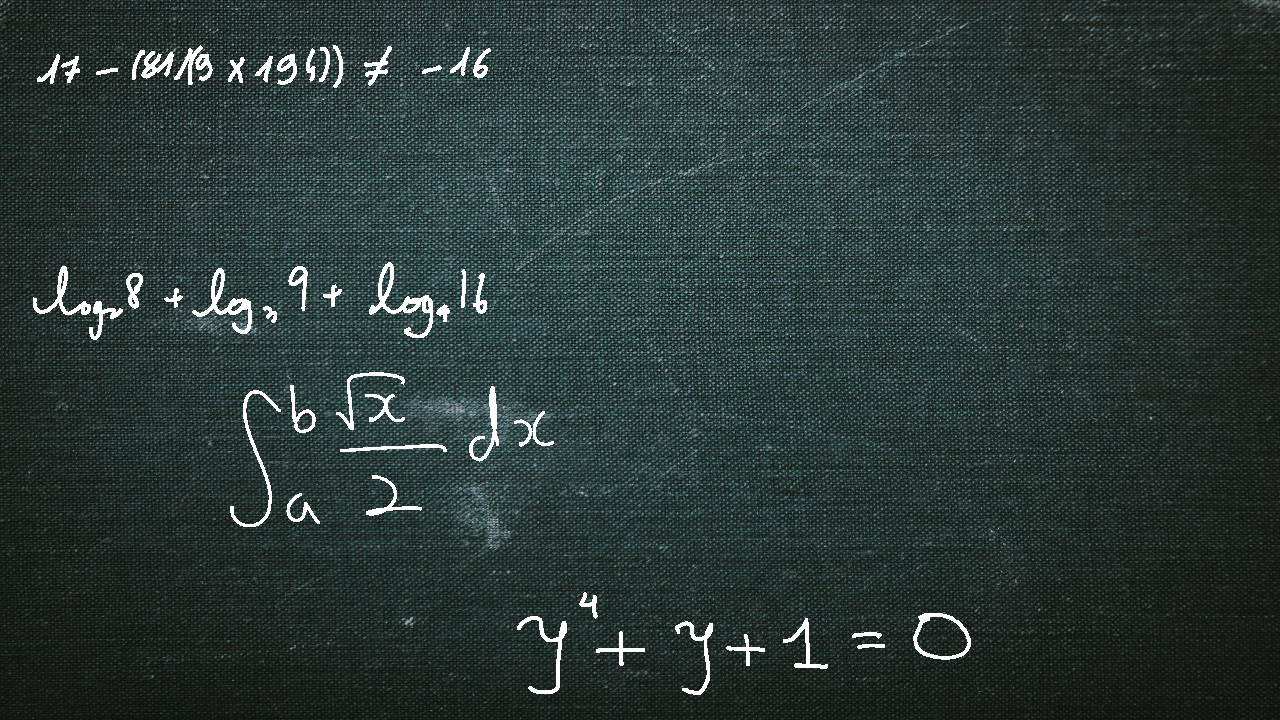 17 - (81/(9 x 19 ()) ≠ -16
log₂ 8 + log₃ 9 + log₄ 16
∫ₐᵇ √x/2 dx
y⁴ + y + 1 = 0